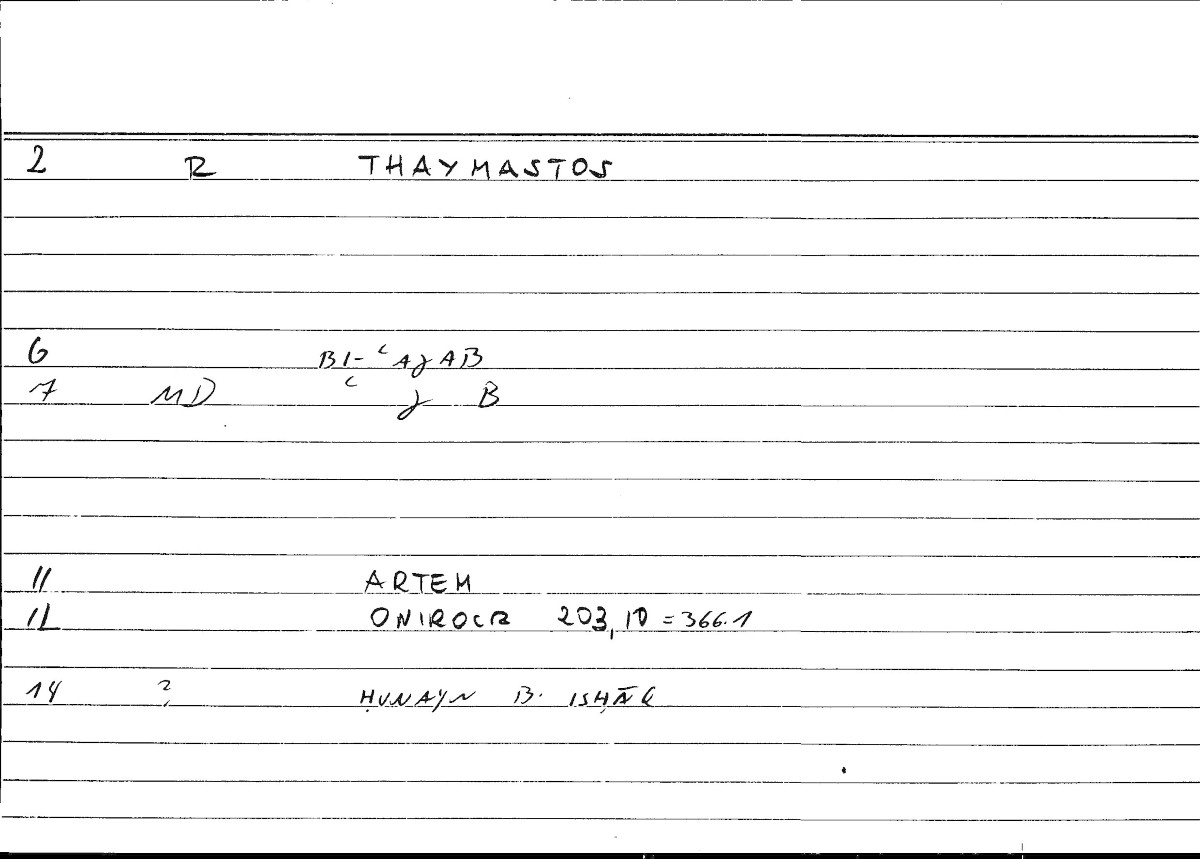 2 R THAYMASTOS
6 BI-ʿAJAB
7 MD ʿ J B
11 ARTEM
12 ONIROCR 203,10 = 366.1
14 ? ḤUNAYN B. ISḤĀQ